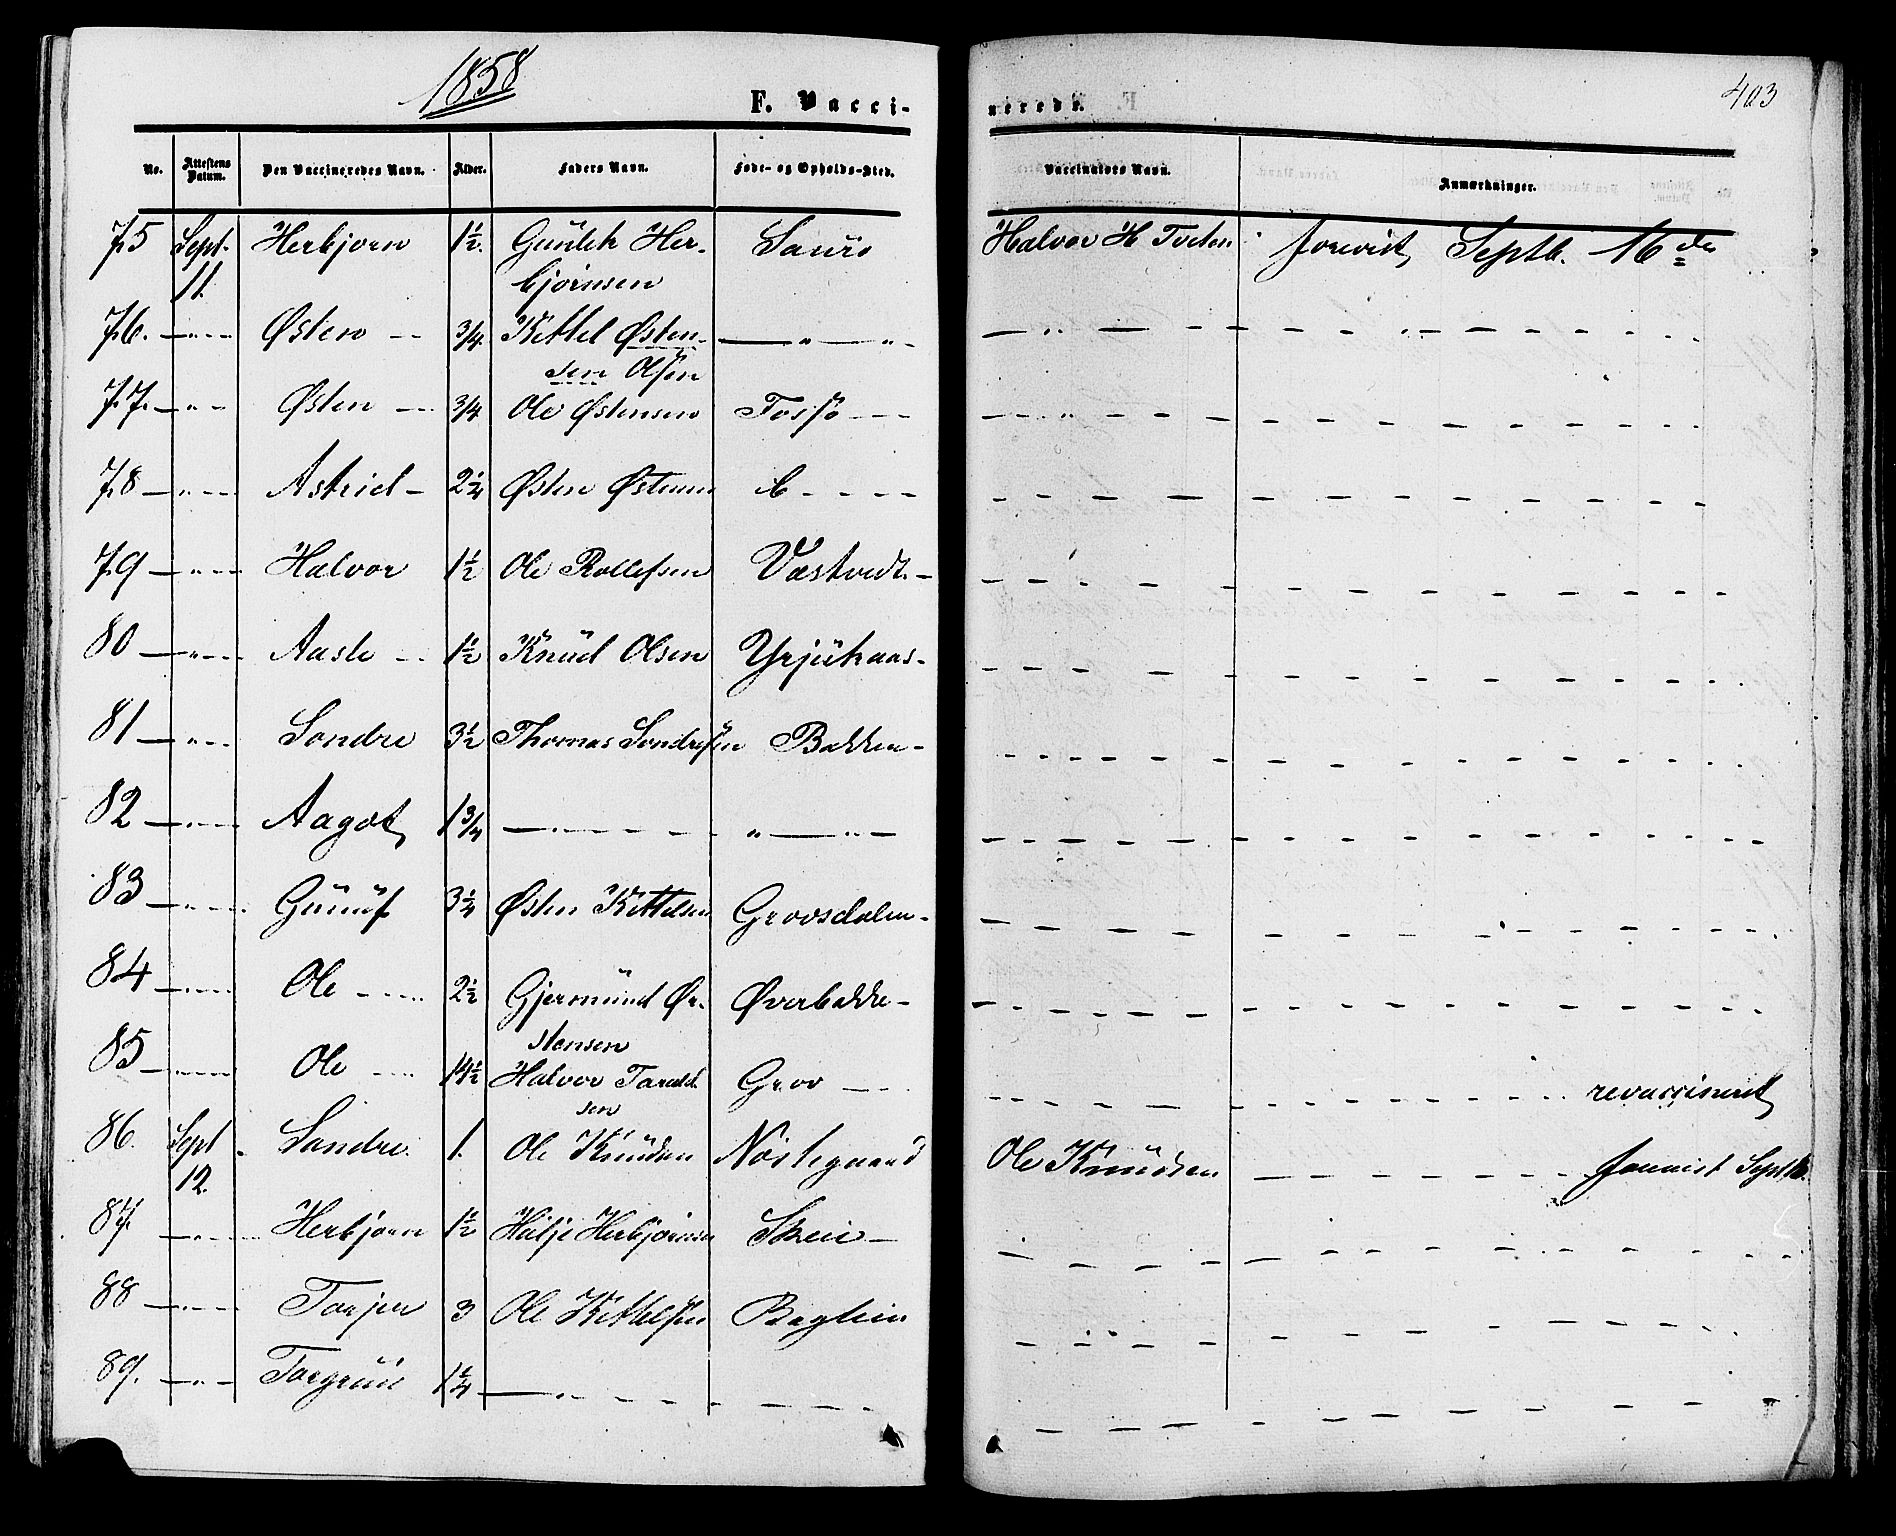 1858
F. Vacci-
nerede.
403
No. Attestens Datum. Den Vaccineredes Navn. Alder. Faders Navn. Føde- og Opholds-Sted. Vaccinators Navn. Anmærkninger.
75 Sept. 11. Herbjorn 1½. Gunlek Herbjørnsen Sauro Halvor H Tveten forevist Septb. 16de
76. —"— Østen — 3/4. Kittel Østensen Olsen —"—"—
77. —"— Østen — 3/4 Ole Østensen Fossø —
78 —"— Astrid — 2¼ Østen Østensen ib — — —
79 —"— Halvor 1½ Ole Rollefsen Vastvedt —
80 —"— Aaste — 1½ Knud Olsen Yrjuhaas-
81 —"— Sondre 3½ Thomas Sondresen Bakken —
82 —"— Aagot 1¾ —"— "—"—
83 —"— Gunuf 3¼ Østen Kittelsen Groosdalen —
84 —"— Ole — 2½ Gjermund Østensen Øverbakke —
85 —"— Ole — 14½ Halvor Taraldsen Grov — revaccineret
86. Sept 12. Sondre 1. Ole Knudsen Nordegaard Ole Knudsen forevist Septb.
87. —"— Herbjorn 1½ Hölje Herbjørnsen Skeie —
88 —"— Torjer 3 Ole Kittelsen Bøglein
89. —"— Torgrim 1¼ —"—